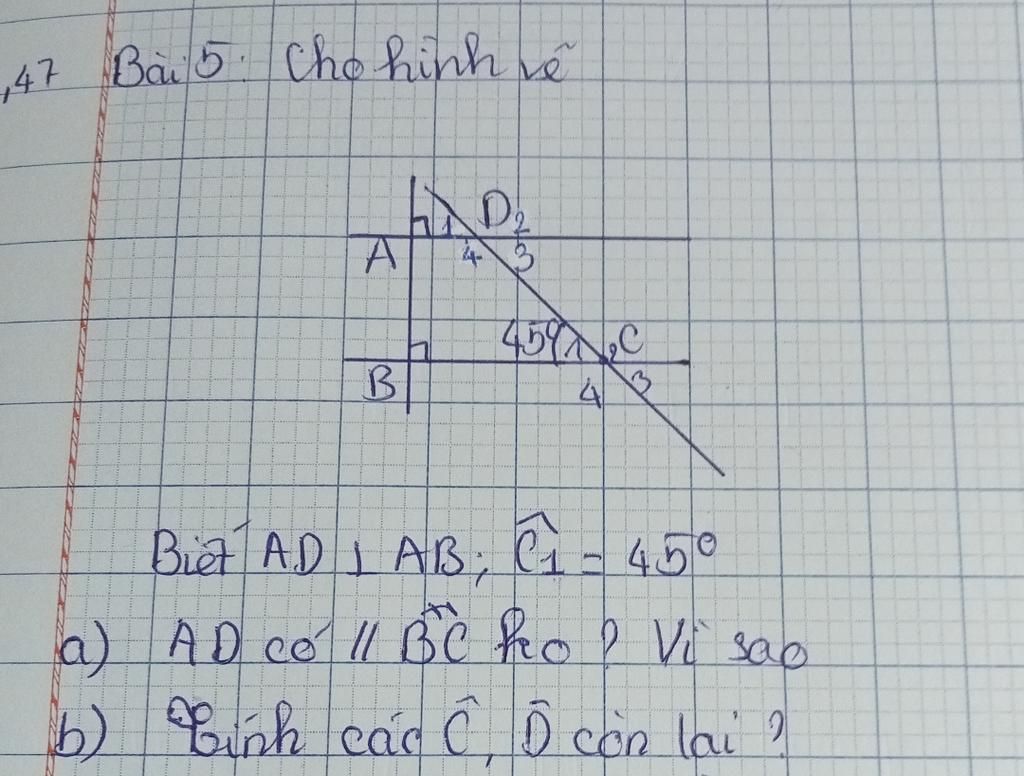 ,47 Bài 5: Cho hình vẽ
D2
1
A 4 3
45° 1 2 C
B 4 3
Biết AD ⊥ AB; Ĉ1 = 45°
a) AD có // BC ko? Vì sao
b) Tính các Ĉ, D̂ còn lại?